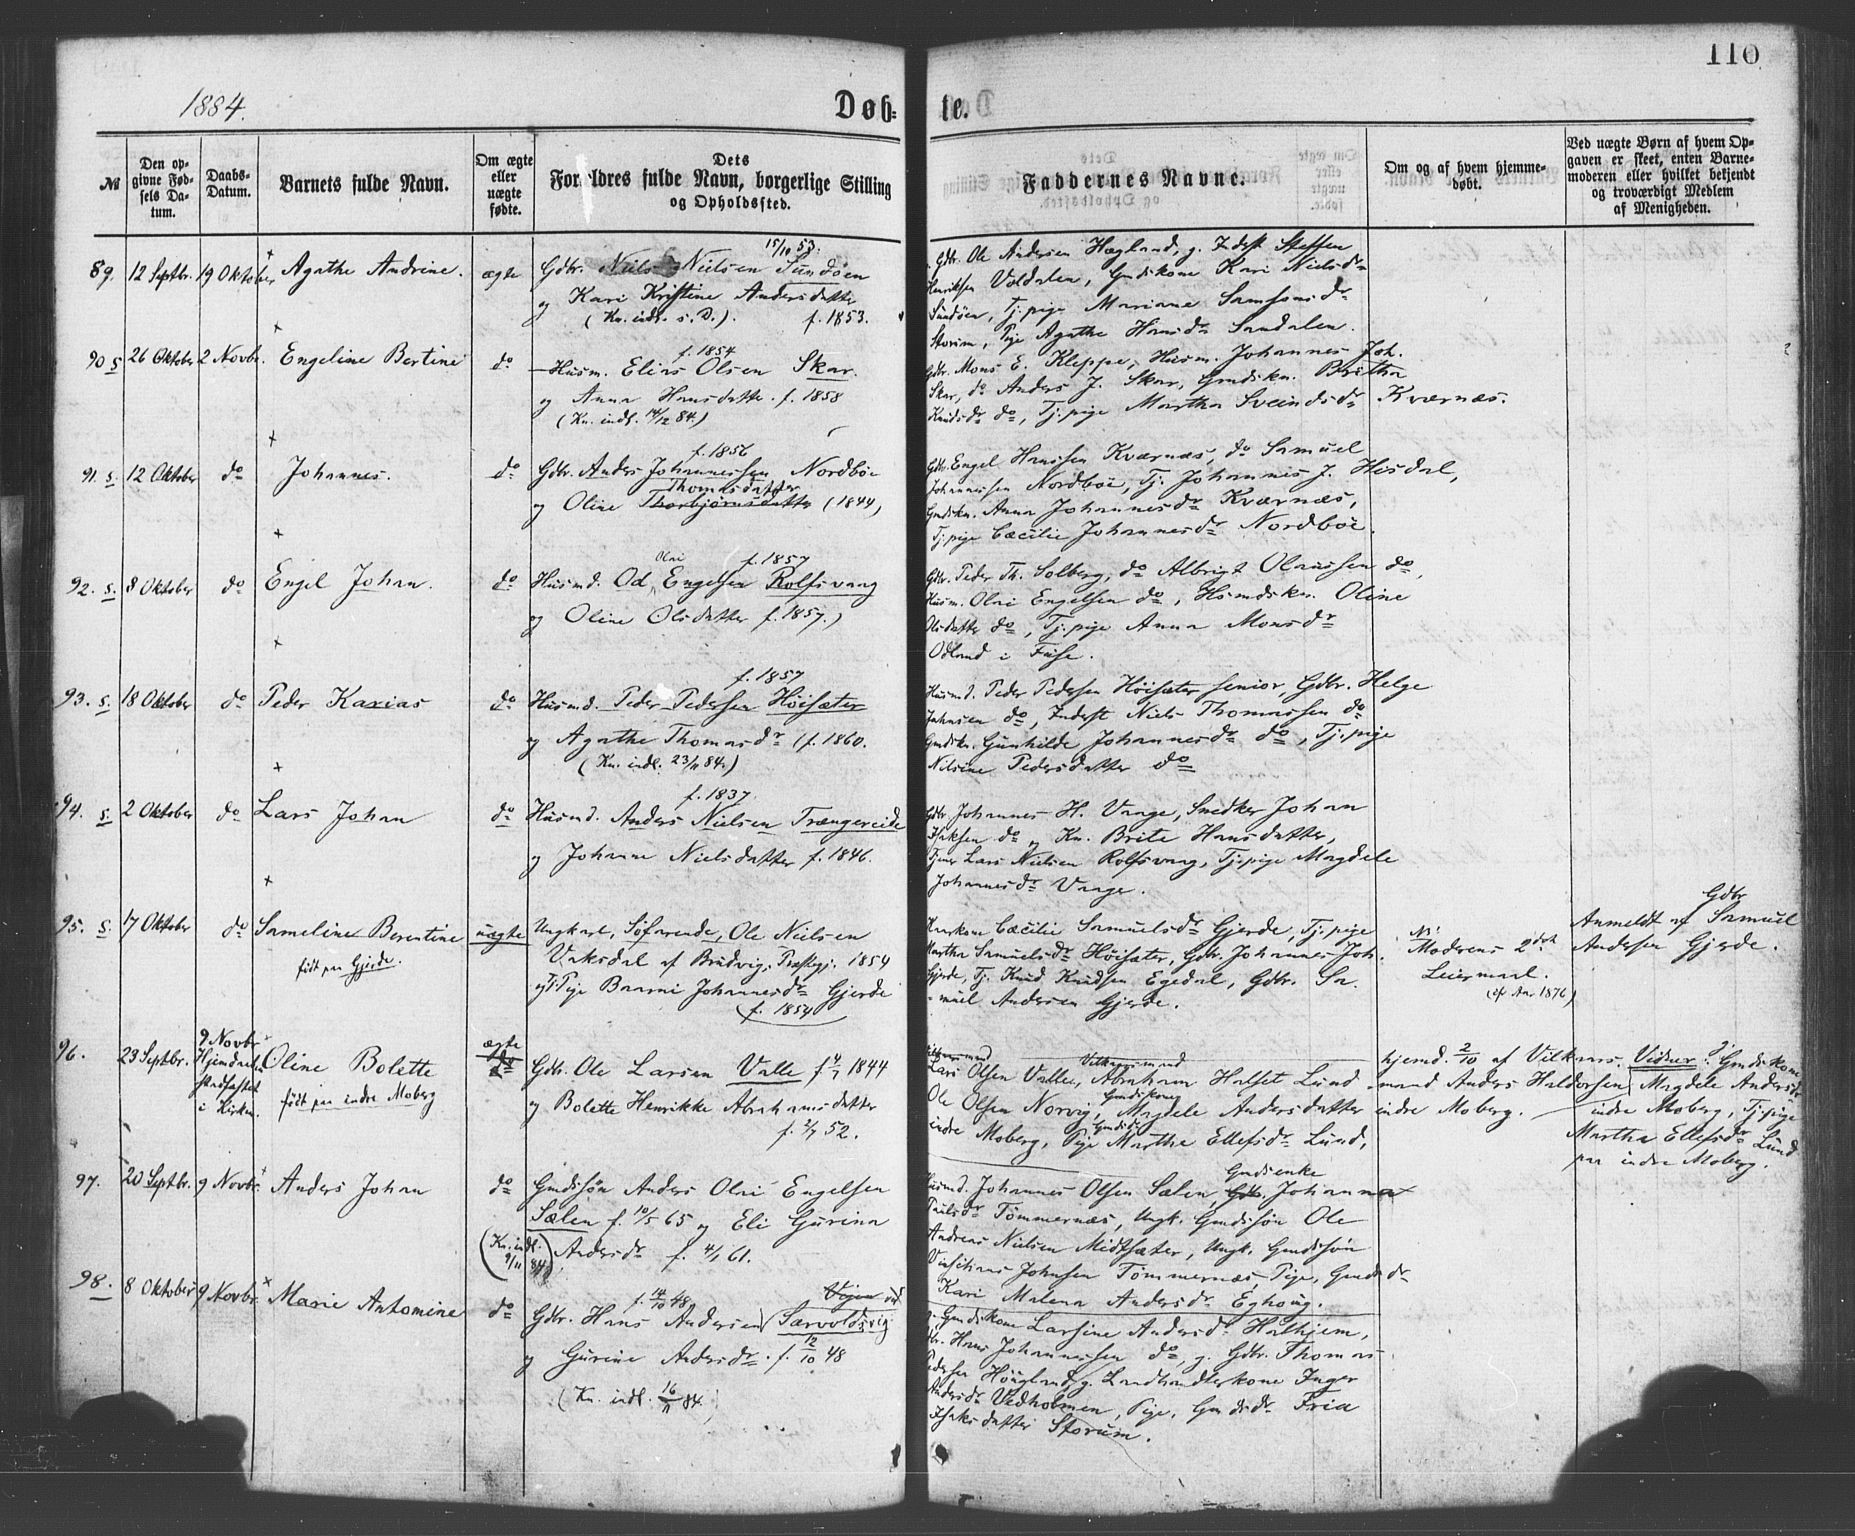 110
1884.
Døb-
te.
№
Den op-
givne Fød-
sels Da-
tum.
Daabs-
Datum.
Barnets fulde Navn.
Om ægte
eller
uægte
fødte.
Dets
Forældres fulde Navn, borgerlige Stilling
og Opholdssted.
Faddernes Navne.
Om og af hvem hjemme-
døbt.
Ved uægte Børn af hvem Op-
gaven er skeet, enten Barne-
moderen eller hvilket bekjendt
og troværdigt Medlem
af Menigheden.
89. 12 Septbr. 19 Oktober Agathe Andrine. ægte
15/10 53.
Gdbr. Niels Nielsen Sundøen
og Kari Kristine Andersdatter
(Kn. indl. s. D.). f. 1853.
Gdbr. Ole Andersen Hægland, g. Inderst Steffen
Henriksen Voldalen, Gmdskone Kari Nielsdr
Sundøen, Tj.pige Mariane Samsonsdr
Storum, Pige Agathe Hansdr Sandalen.
90 s 26 Oktober 2 Novbr. Engeline Bertine do
f. 1854
Husm. Elias Olsen Skar.
og Anna Hansdatter. f. 1858
(Kn. indl. 14/12 84.)
Gdbr. Mons E. Kleppe, Husm. Johannes Joh.
Skar, do Anders J. Skar, Gmdskn. Britha
Knudsdr do, Tj.pige Martha Sveindsdr Kværnæs.
91. s. 12 Oktober do Johannes. do
f. 1856
Gdbr. Anders Johannessen Nordbøe
Thomasdatter
og Oline Thorbjørnsdatter (1844)
Gdbr. Engel Hanssen Kværnæs, do Samuel
Johannessen Nordbøe, Tj. Johannes J. Hisdal,
Gmdskn. Anna Johannesdr Kværnæs,
Tj.pige Cæcilie Johannesdr Nordbøe.
92. s. 8 Oktober do Engel Johan. do
Olai f. 1857
Husmd. Od Engelsen Rolfsvaag
og Oline Olsdatter f. 1857.)
Gdbr. Peder Th. Solberg, do Albrigt Olaussen do,
Husm. Olai Engelsen do, Husmdskn. Oline
Olsdatter do, Tj.pige Anna Monsdr
Odland i Fuse.
93. s. 18 Oktober do Peder Karias do
f. 1857
Husmd. Peder Pedersen Høisæter
og Agathe Thomasdr (f. 1860.
(Kn. indl. 23/11 84.)
Husmd. Peder Pedersen Høisæter senior, Gdbr. Helge
Johnsen do, Inderst Niels Thomassen do
Gmdskn. Gunhilde Johannesdr do, Tj.pige
Nilsine Pedersdatter do
94. s. 2 Oktober do Lars Johan do
f. 1837.
Husmd. Anders Nielsen Trængereide
og Johanne Nielsdatter f. 1846.
Gdbr Johannes H. Vaage, Snedker Johan
Isaksen do og Kn. Brite Hansdatter,
Tjener Lars Nielsen Rolfsvaag, Tj.pige Magdele
Johannesdr Vaage.
95. s. 17 Oktober do Sameline Berentine uægte
født paa Gjerde.
Ungkarl, Søfarende, Ole Nielsen
Vaksdal af Brudvig, Præstegj. 1854
og T. Pige Baarni Johannesdr Gjerde
f. 1854
Kaarkone Cæcilie Samuelsdr Gjerde, Tj.pige
Martha Samuelsdr Høisæter, Gdbr. Johannes Joh.
Gjerde, Tj. Knud Knudsen Egedal, Gdbr. Sa-
muel Andersen Gjerde.
NB!
Moderens 2det
Leiermaal.
(cf Aar 1876)
Gdbr
Anmeldt af Samuel
Andersen Gjerde.
96. 23 Septbr. 9 Novbr
Hjemdaaben
stadfæstet
i Kirken.
Oline Bolette
født paa indre Moberg
ægte
do
Gdbr. Ole Larsen Valle f 4/7 1844
og Bolette Henrikke Abrahamsdatter
f. 2/7 52.
Lars Olsen Valle, Abraham Halset Lund
Ole Olsen Norvig, Magdele Andersdatter
indre Moberg, Pige Marthe Ellefsdr Lund,
hjemd. 2/10 af Vilkaars-
mand Anders Haldorsen
indre Moberg.
Vidner: Gmdskone
Magdele Andersdr
indre Moberg, Tj.pige
Martha Ellefsdr Lund
paa indre Moberg.
97. 20 Septbr. 9 Novbr. Anders Johan do
Gmdssøn Anders Olai Engelsen
Sælen f. 10/5 65 og Eli Gurina
(Kn. indl. 9/11 84) Andersdr f. 4/1 61.
Husmd. Johannes Olsen Sælen, Gmdsenke Johanna
Paulsdr Tømmernæs, Ungk. Gmdssøn Ole
Andreas Nielsen Midtsæter, Ungk. Gmdssøn
Johnsen Tømmernæs, Pige, Gmdsdr
Kari Malena Andersdr Eghoug.
98. 8 Oktober 9 Novbr. Marie Antomine do
f. 14/10 48
Gdbr. Hans Andersen Særvoldsvig
og Gurine Andersdr. f. 12/10 48
(Kn. indl. 16/11 84.
g. Gmdskone Larsine Andersdr Halhjem,
Gdbr. Hans Johannessen do, g. Gdbr. Thomas
Pedersen Hougland, g. Landhandlerkone Inger
Andersdr Vedholmen, Pige, Gmdsdr Fria
Isaksdatter Storum.